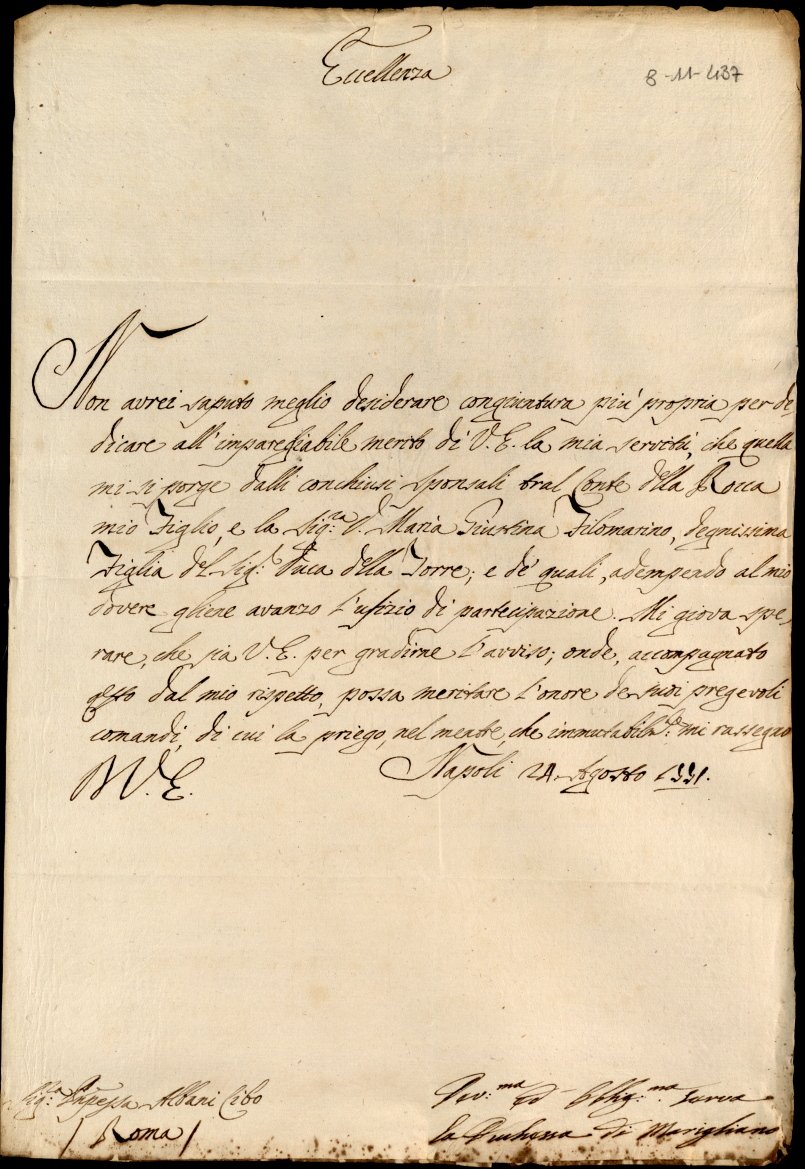 Eccellenza
8-11-437
Non avrei saputo meglio desiderare congiuntura più propria per de,
dicare all'impareggiabile merito di V. E. la mia servitù, che quella
mi si porge dalli conchiusi sponsali tral Conte della Rocca
mio Figlio, e la Sig.ra D. Maria Giustina Filomarino, degnissima
Figlia del Sig.r Duca della Torre; e de' quali, adempendo al mio
dovere gliene avanzo l'ufizio di partecipazione. Mi giova spe,
rare, che sia V. E. per gradirne l'avviso; onde, accompagnato
qsto dal mio rispetto, possa meritare l'onore de suoi pregevoli
comandi, di cui la priego, nel mentre, che immutabilm.te mi rassegno
Di V. E.
Napoli 24 Agosto
Sig.ra Pnpessa Albani Cibo
/ Roma /
Dev.ma ed Obblig.ma Serva
la Duchessa di Marigliano